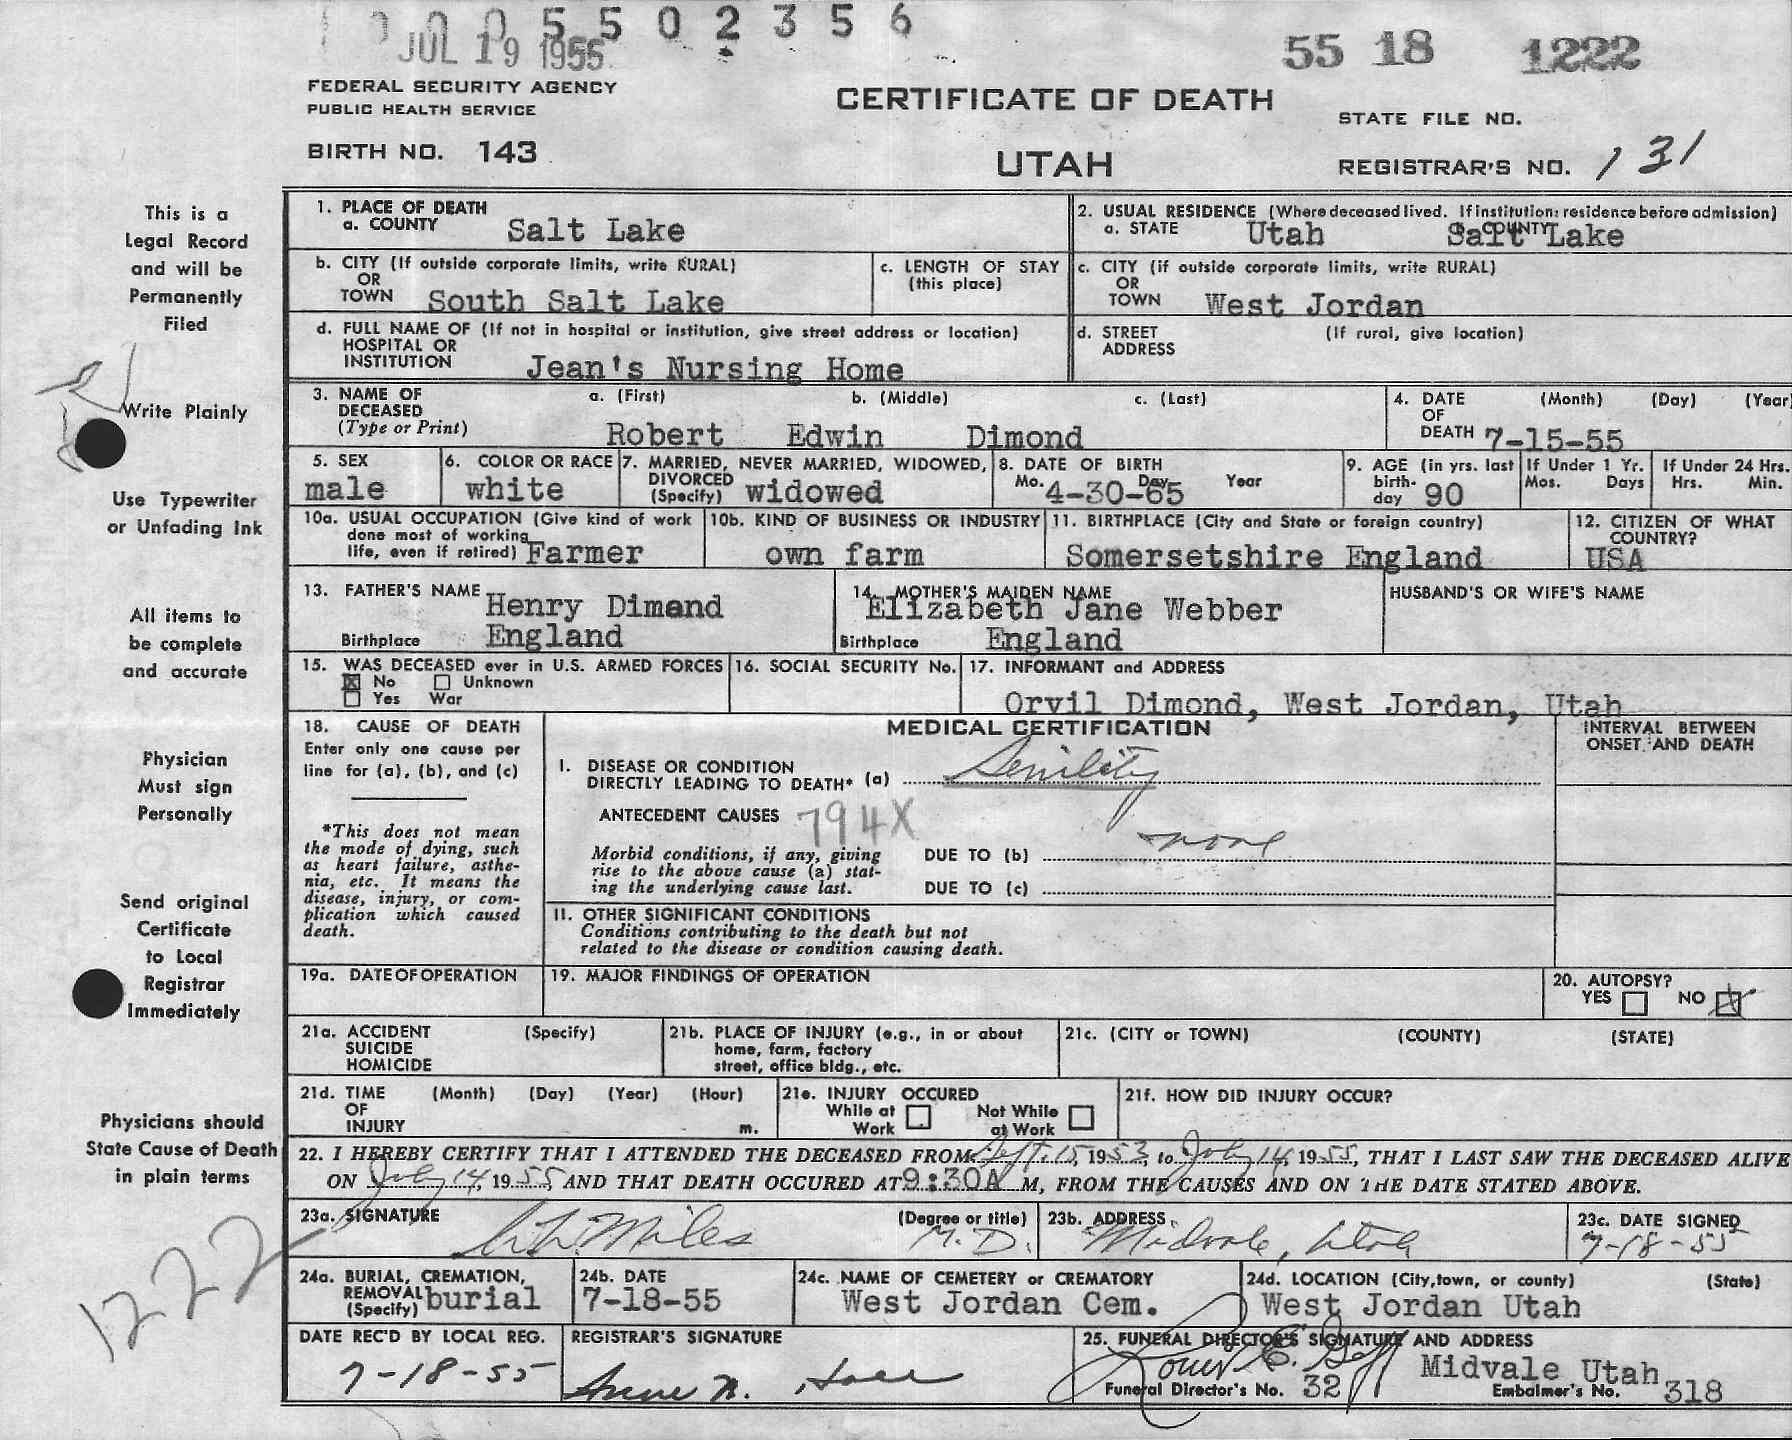 0 0 0 5 5 0 2 3 5 6
JUL 19 1955
55 18 1222
FEDERAL SECURITY AGENCY
PUBLIC HEALTH SERVICE
CERTIFICATE OF DEATH
STATE FILE NO.
BIRTH NO. 143
UTAH
REGISTRAR'S NO. 131
This is a
Legal Record
and will be
Permanently
Filed
Write Plainly
Use Typewriter
or Unfading Ink
All items to
be complete
and accurate
Physician
Must sign
Personally
Send original
Certificate
to Local
Registrar
Immediately
Physicians should
State Cause of Death
in plain terms
1222
1. PLACE OF DEATH
a. COUNTY Salt Lake
2. USUAL RESIDENCE (Where deceased lived. If institution: residence before admission)
a. STATE Utah COUNTY Salt Lake
b. CITY (If outside corporate limits, write RURAL)
OR
TOWN South Salt Lake
c. LENGTH OF STAY
(this place)
c. CITY (if outside corporate limits, write RURAL)
OR
TOWN West Jordan
d. FULL NAME OF (If not in hospital or institution, give street address or location)
HOSPITAL OR
INSTITUTION Jean's Nursing Home
d. STREET (If rural, give location)
ADDRESS
3. NAME OF a. (First) b. (Middle) c. (Last)
DECEASED
(Type or Print) Robert Edwin Dimond
4. DATE (Month) (Day) (Year)
OF
DEATH 7-15-55
5. SEX
male
6. COLOR OR RACE
white
7. MARRIED, NEVER MARRIED, WIDOWED,
DIVORCED
(Specify) widowed
8. DATE OF BIRTH
Mo. Day Year
4-30-65
9. AGE (in yrs. last
birth-
day 90
If Under 1 Yr.
Mos. Days
If Under 24 Hrs.
Hrs. Min.
10a. USUAL OCCUPATION (Give kind of work
done most of working
life, even if retired) Farmer
10b. KIND OF BUSINESS OR INDUSTRY
own farm
11. BIRTHPLACE (City and State or foreign country)
Somersetshire England
12. CITIZEN OF WHAT
COUNTRY?
USA
13. FATHER'S NAME Henry Dimond
Birthplace England
14. MOTHER'S MAIDEN NAME
Elizabeth Jane Webber
Birthplace England
HUSBAND'S OR WIFE'S NAME
15. WAS DECEASED ever in U.S. ARMED FORCES
X No Unknown
Yes War
16. SOCIAL SECURITY No.
17. INFORMANT and ADDRESS
Orvil Dimond, West Jordan, Utah
18. CAUSE OF DEATH
Enter only one cause per
line for (a), (b), and (c)
*This does not mean
the mode of dying, such
as heart failure, asthe-
nia, etc. It means the
disease, injury, or com-
plication which caused
death.
MEDICAL CERTIFICATION
INTERVAL BETWEEN
ONSET AND DEATH
I. DISEASE OR CONDITION
DIRECTLY LEADING TO DEATH* (a) Senility
ANTECEDENT CAUSES 794X
Morbid conditions, if any, giving
rise to the above cause (a) stat-
ing the underlying cause last.
DUE TO (b) none
DUE TO (c)
II. OTHER SIGNIFICANT CONDITIONS
Conditions contributing to the death but not
related to the disease or condition causing death.
19a. DATE OF OPERATION
19. MAJOR FINDINGS OF OPERATION
20. AUTOPSY?
YES NO X
21a. ACCIDENT (Specify)
SUICIDE
HOMICIDE
21b. PLACE OF INJURY (e.g., in or about
home, farm, factory
street, office bldg., etc.
21c. (CITY or TOWN) (COUNTY) (STATE)
21d. TIME (Month) (Day) (Year) (Hour)
OF
INJURY m.
21e. INJURY OCCURED
While at Work Not While at Work
21f. HOW DID INJURY OCCUR?
22. I HEREBY CERTIFY THAT I ATTENDED THE DECEASED FROM Sept. 15, 1953, to July 14, 1955, THAT I LAST SAW THE DECEASED ALIVE
ON July 14, 1955 AND THAT DEATH OCCURED AT 9:30A M, FROM THE CAUSES AND ON THE DATE STATED ABOVE.
23a. SIGNATURE (Degree or title)
Miles M.D.
23b. ADDRESS
Midvale, Utah
23c. DATE SIGNED
7-18-55
24a. BURIAL, CREMATION,
REMOVAL
(Specify) burial
24b. DATE
7-18-55
24c. NAME OF CEMETERY or CREMATORY
West Jordan Cem.
24d. LOCATION (City, town, or county) (State)
West Jordan Utah
DATE REC'D BY LOCAL REG.
7-18-55
REGISTRAR'S SIGNATURE
Anne N.
25. FUNERAL DIRECTOR'S SIGNATURE AND ADDRESS
E. Midvale Utah
Funeral Director's No. 32
Embalmer's No. 318